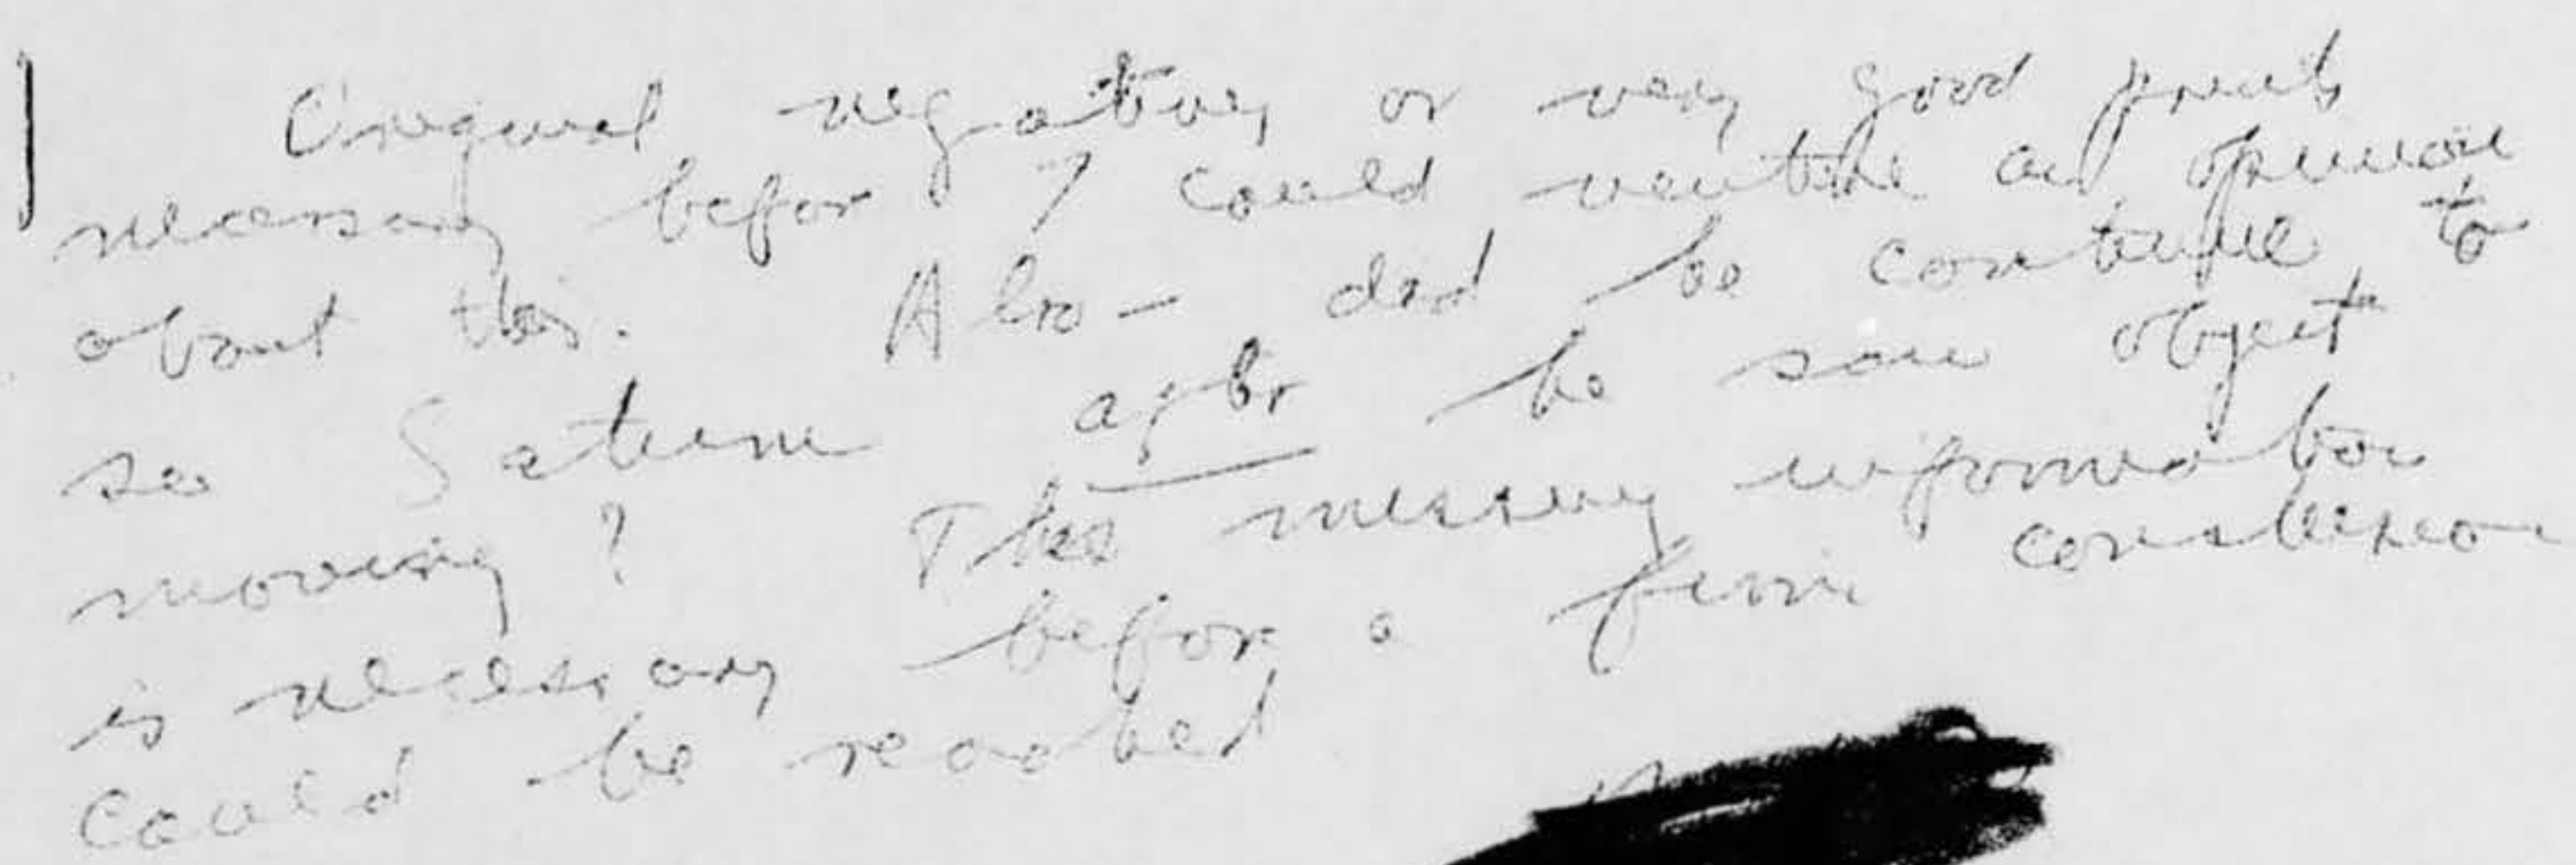 Original negatives or very good prints
necessary before I could venture an opinion
about this. Also - did he continue to
see Saturn after he saw object
moving? This missing information
is necessary before a firm conclusion
could be reached